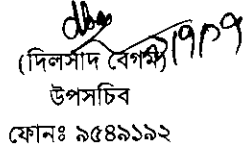 (দিলসাদ বেগম)
উপসচিব
ফোনঃ ৯৫৪৯১৯২